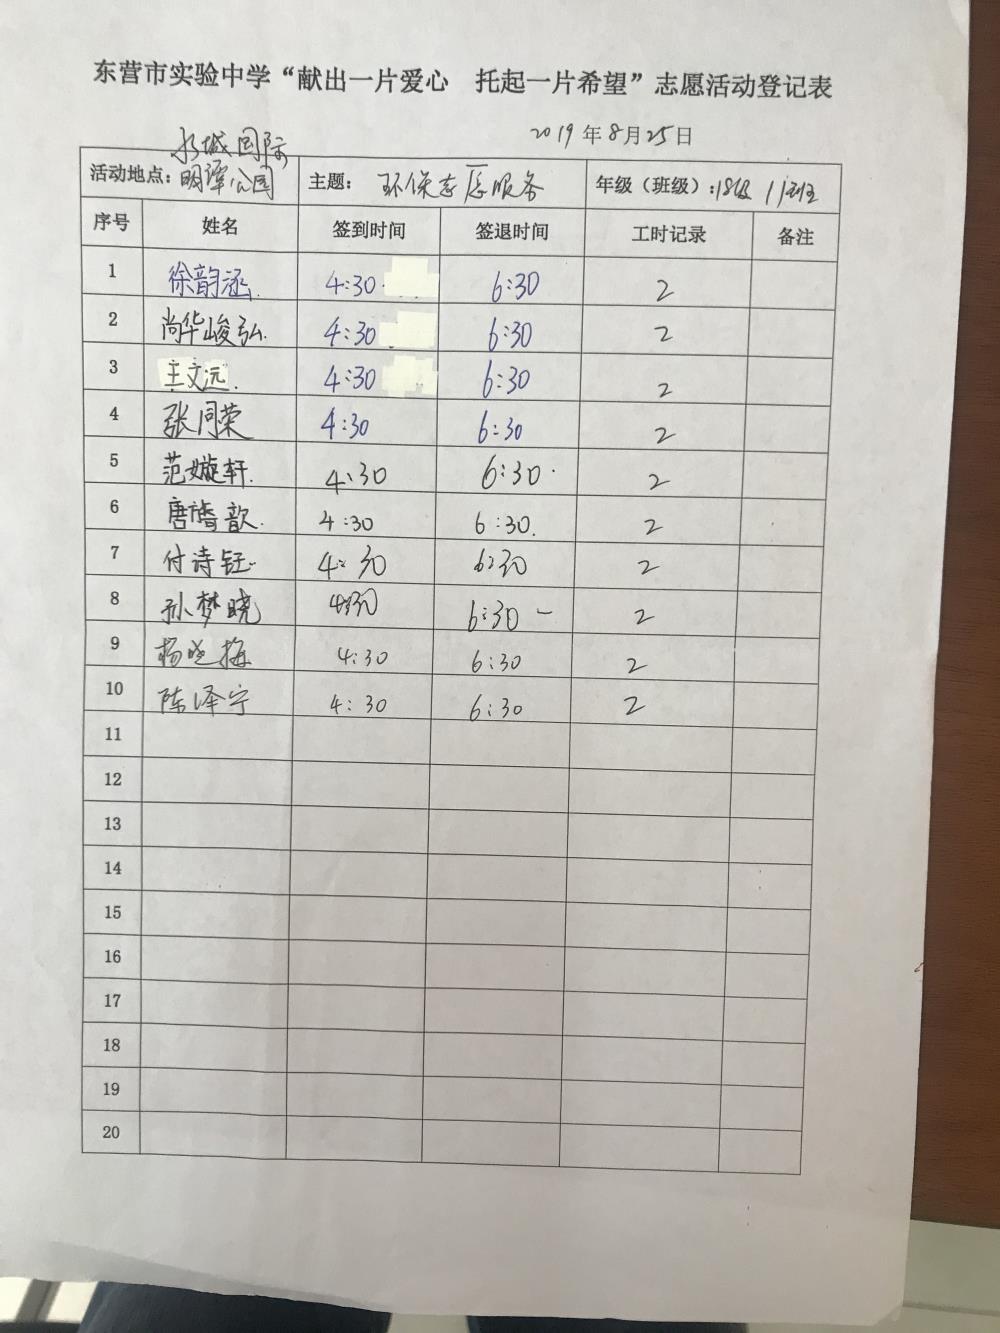 东营市实验中学“献出一片爱心 托起一片希望”志愿活动登记表
2019年8月25日
水城国际
活动地点：明潭公园 主题：环保志愿服务 年级（班级）：18级 11班
序号 姓名 签到时间 签退时间 工时记录 备注
1 徐韵涵. 4:30 6:30 2
2 尚华峻弘. 4:30 6:30 2
3 王文远. 4:30 6:30 2
4 张同荣 4:30 6:30 2
5 范嫙轩. 4:30 6:30 2
6 唐 歆. 4:30 6:30. 2
7 付诗钰 4:30 6:30 2
8 孙梦晓 4:30 6:30 2
9 杨晓梅 4:30 6:30 2
10 陈泽宁 4:30 6:30 2
11
12
13
14
15
16
17
18
19
20